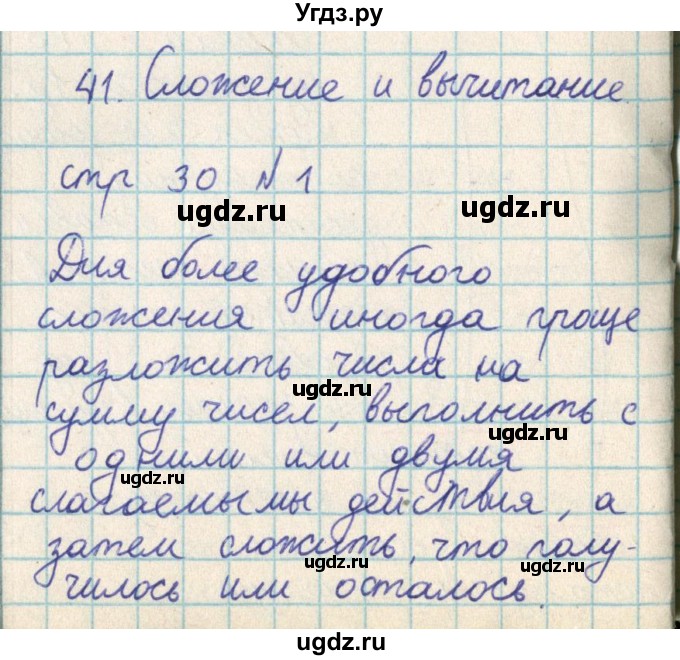 Угдз.ру
41. Сложение и вычитание.
стр 30 №1
ugdz.ru
ugdz.ru
Для более удобного
сложения иногда проще
разложить числа на
ugdz.ru
сумму чисел, выполнить с
ugdz.ru
одними или двумя
ugdz.ru
слагаемымы действия, а
затем сложить, что полу-
ugdz.ru
ugdz.ru
чилось или осталось.
ugdz.ru